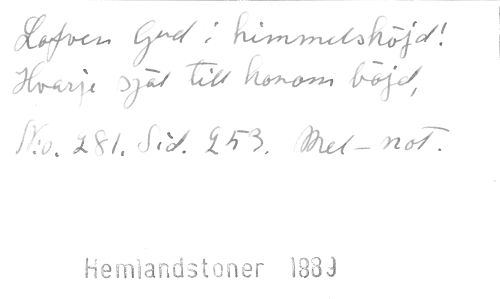 Lofven Gud i himmelshöjd!
Hvarje själ till honom böjd,
No. 281. Sid. 253. Mel-not.
Hemlandstoner 1889